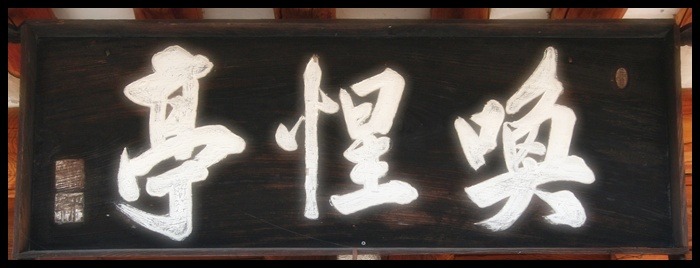 喚惺亭